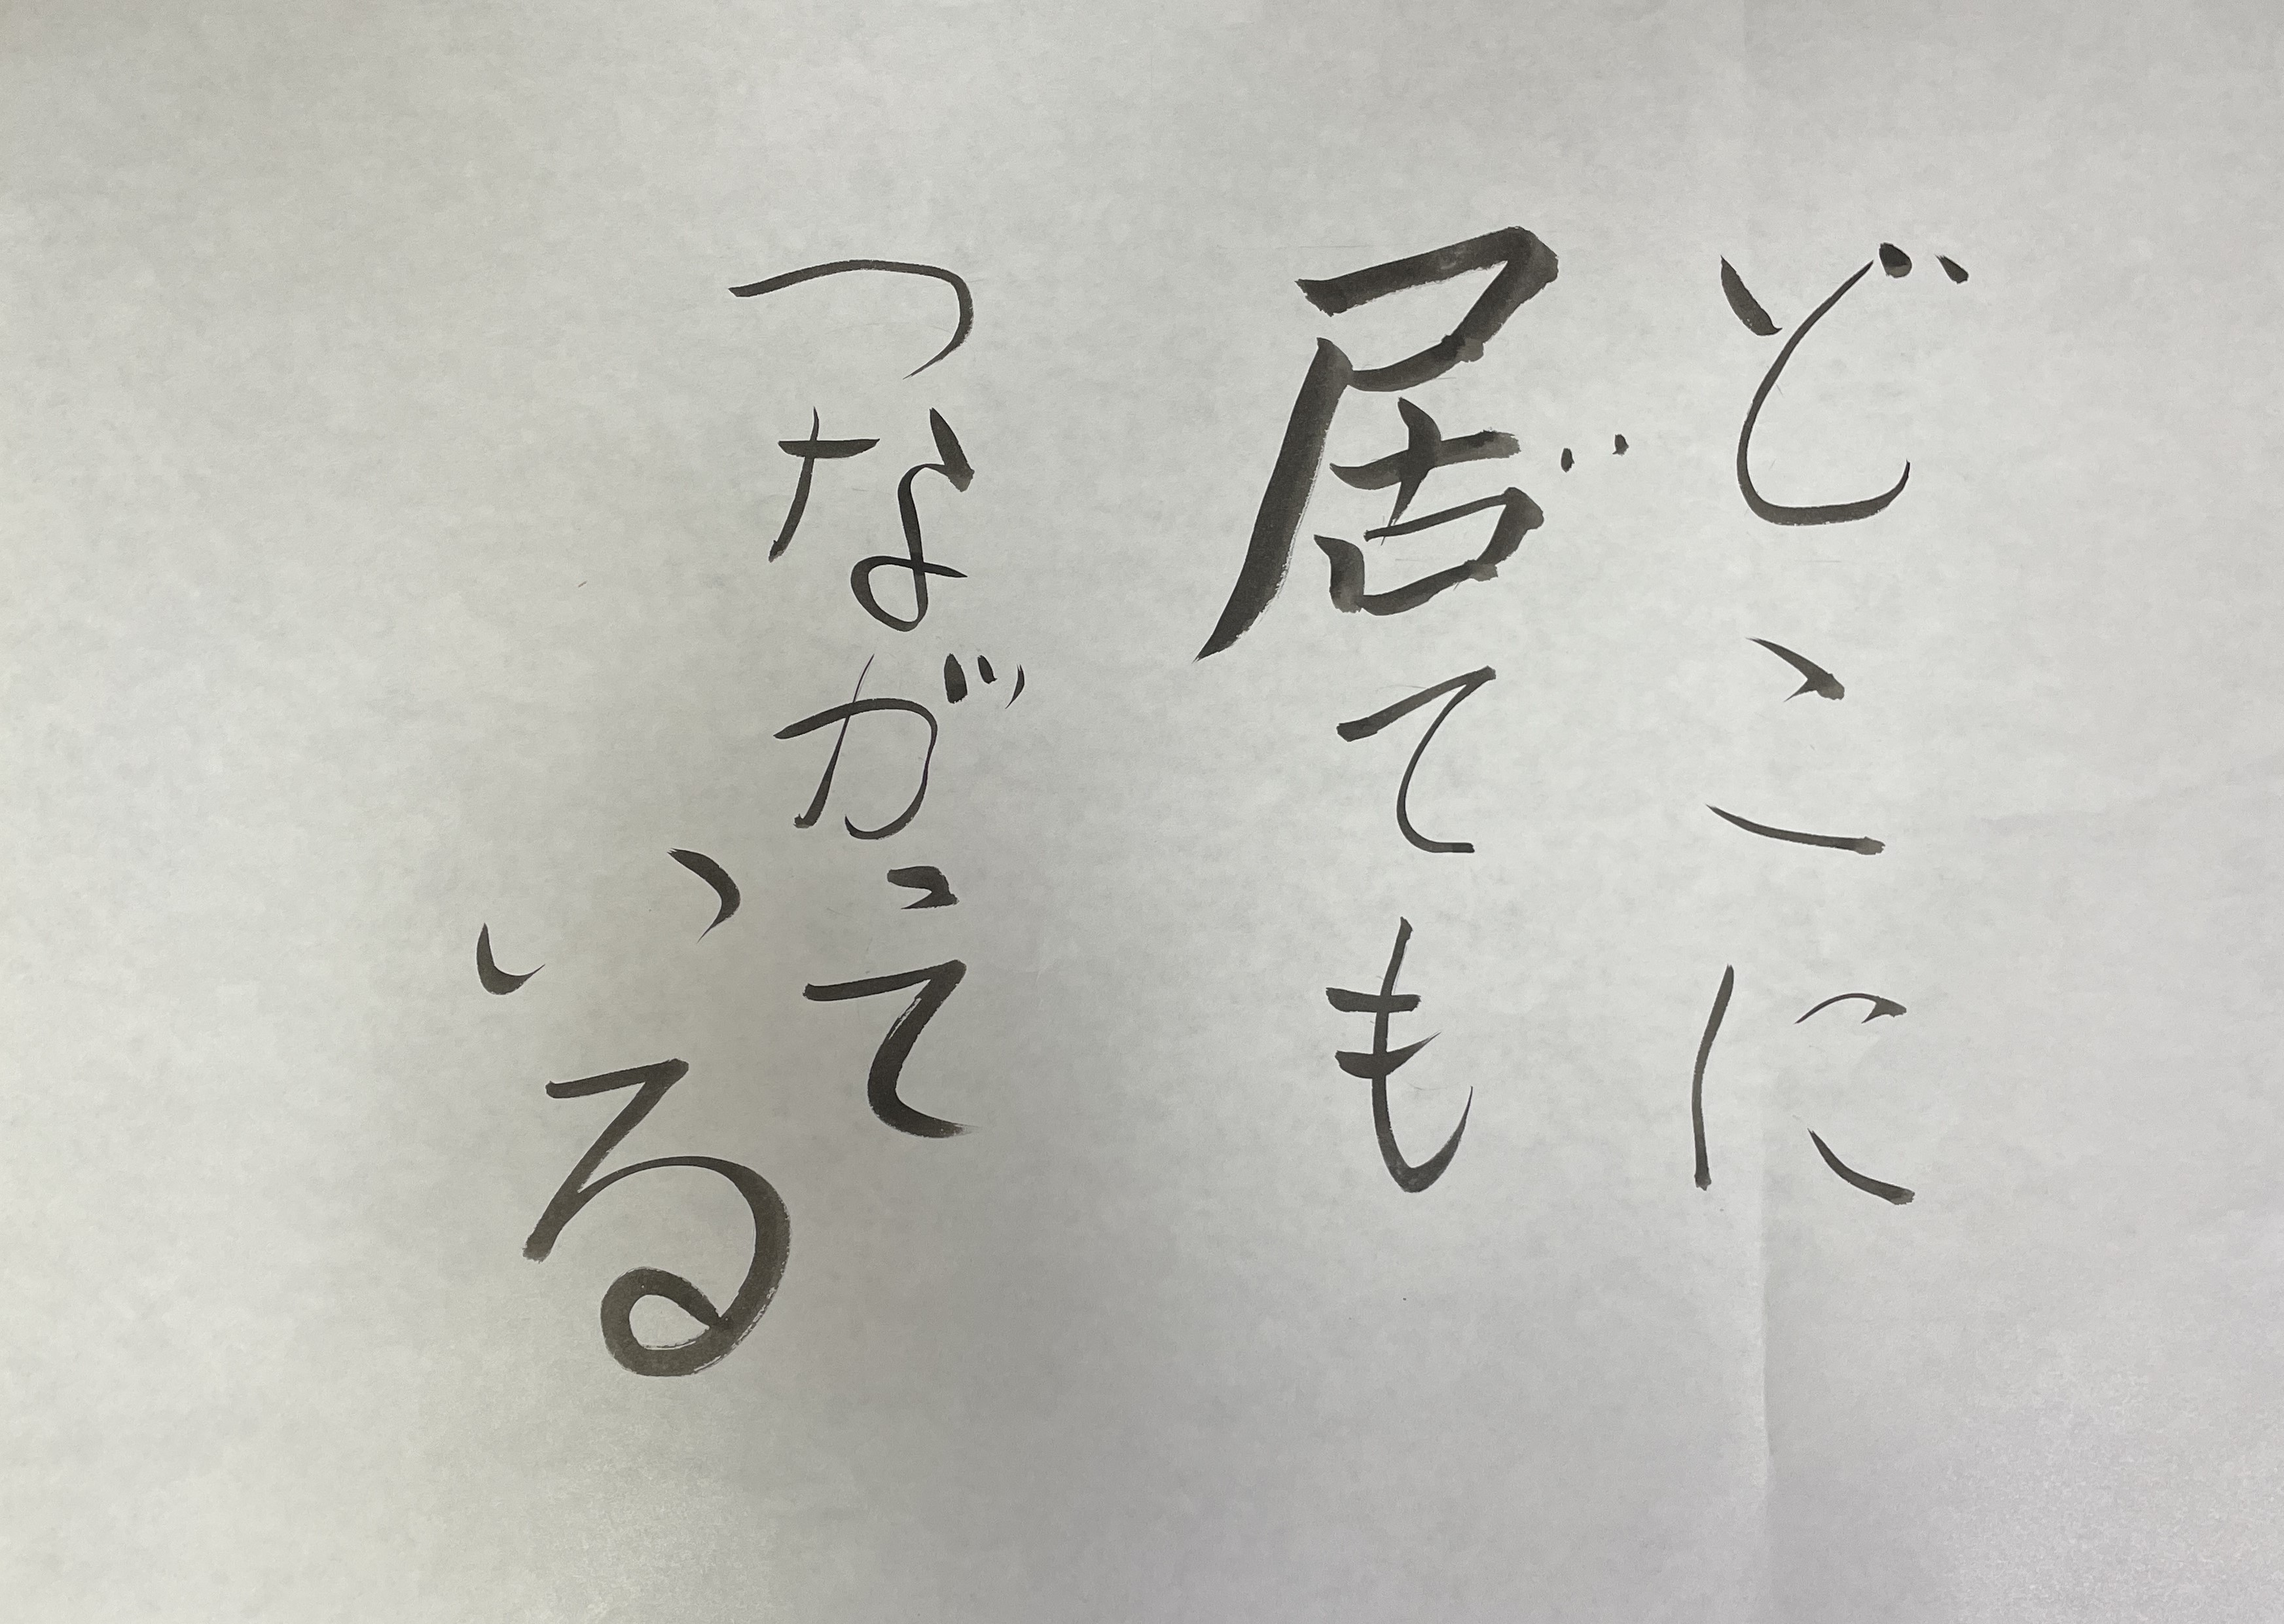 どこに
居ても
つながって
いる